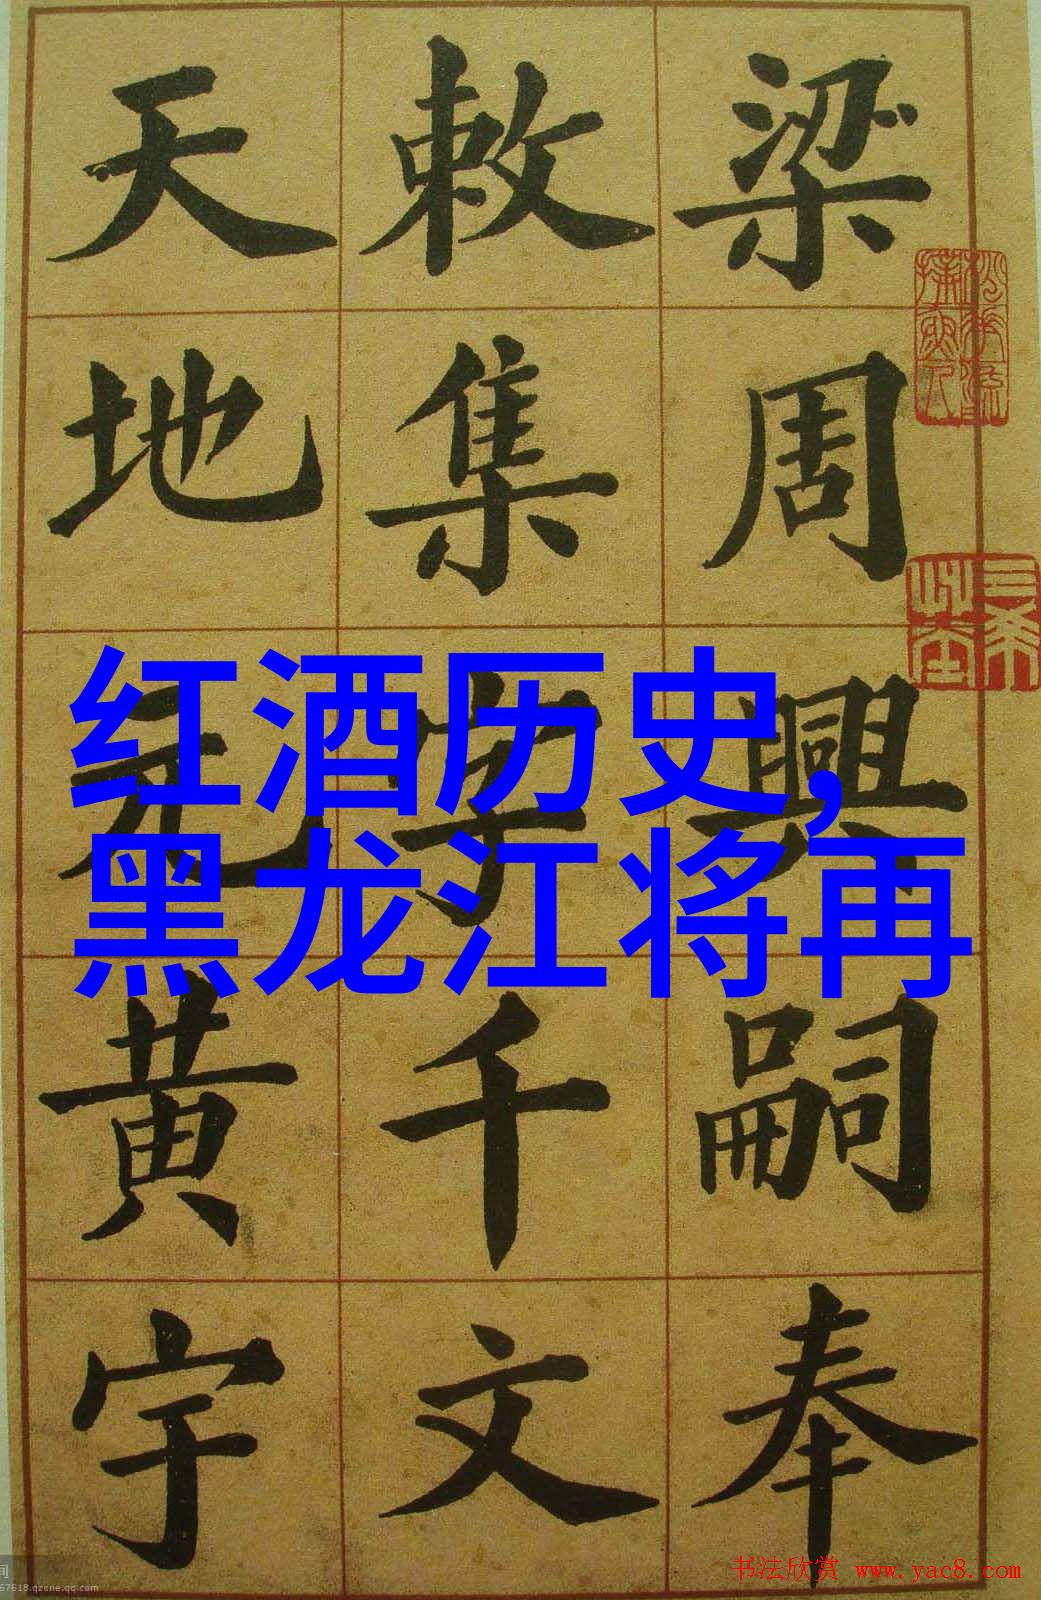 梁周興嗣奉
敕集字千文
天地元黄宇
红酒历史,
黑龙江将再
书法欣赏 www.yac8.com
67618.qzone.qq.com